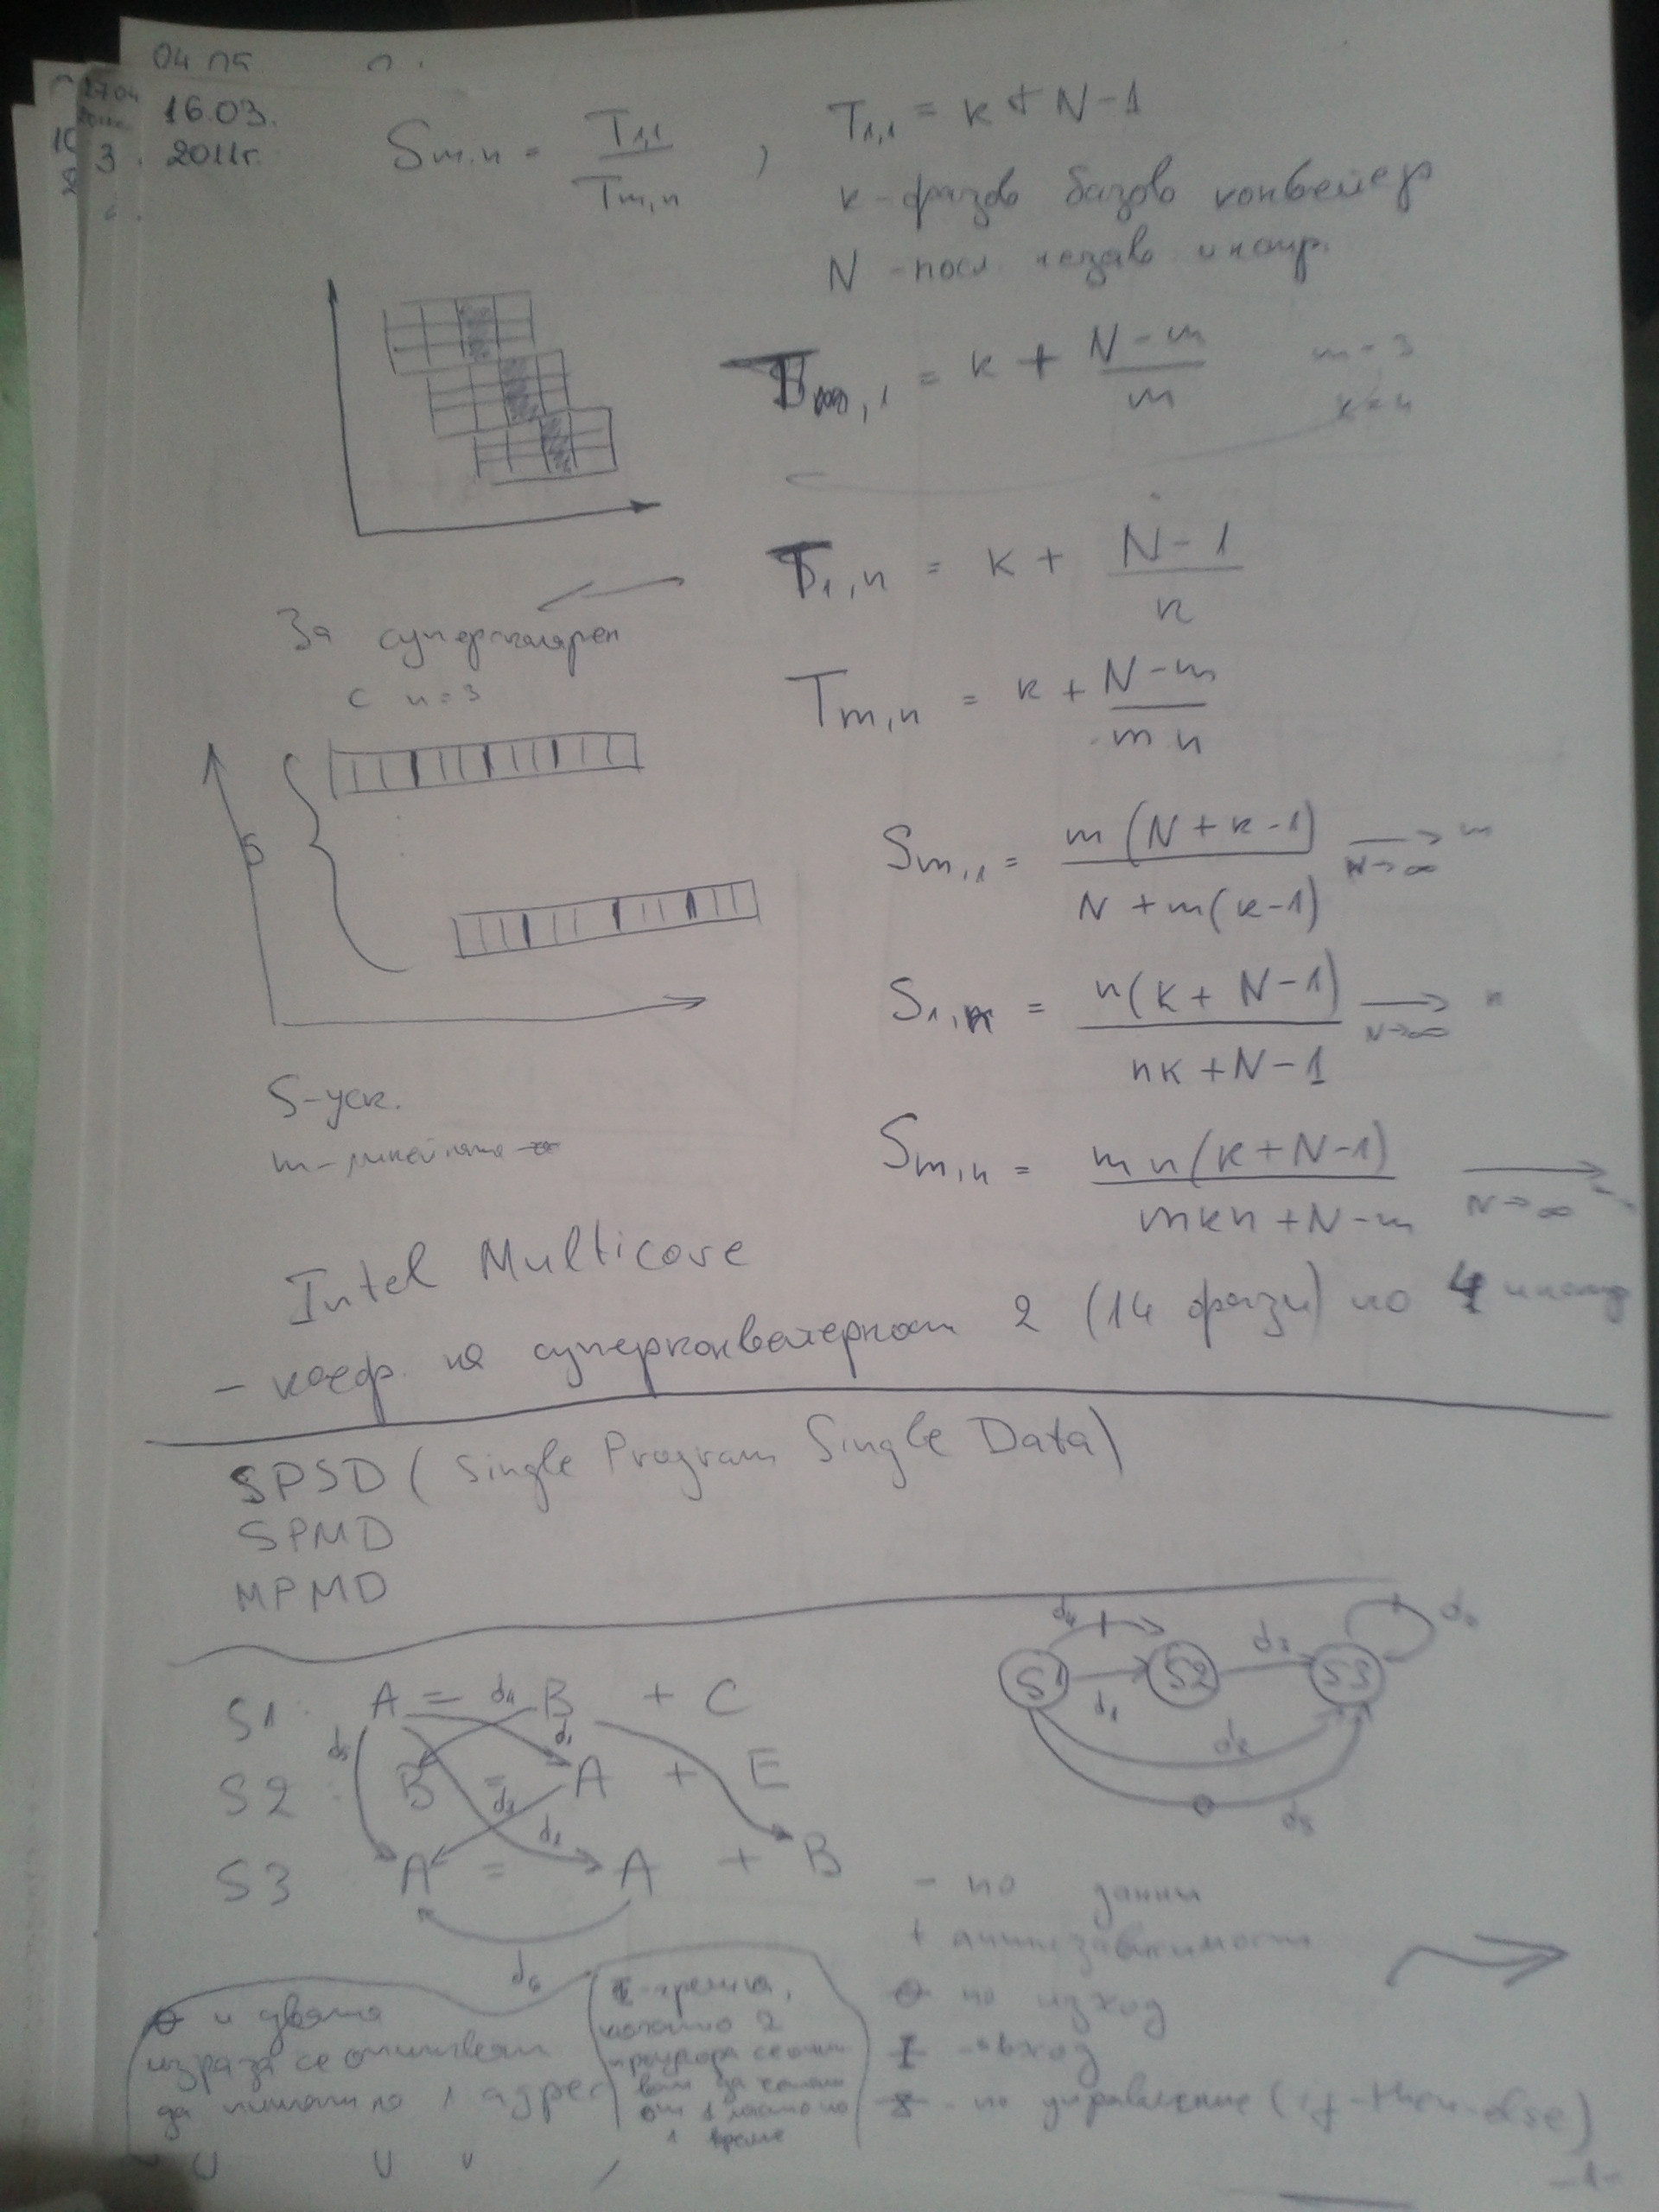 04 ПБ
16.03.
2011г.
3.
S m,n = T1,1 / Tm,n , T1,1 = k + N - 1
k - фазов базов конвейер
N - посл. незав. инстр.
Tm,1 = k + (N - m) / m
m = 3
k = 4
T1,n = k + (N - 1) / n
За суперскаларен
с n = 3
Tm,n = k + (N - m) / m n
Sm,1 = m (N + k - 1) / N + m(k - 1) → N→∞ m
S1,n = n(k + N - 1) / nk + N - 1 → N→∞ n
S - уск.
Sm,n = m n (k + N - 1) / mkn + N - m → N→∞
m - линейна
Intel Multicore
- коеф. на суперконвейерност 2 (14 фази) по 4
SPSD ( Single Program Single Data)
SPMD
MPMD
S1: A = B + C
S2: B = A + E
S3 A = A + B
d4 d1 d5 d3 d2 d6
S1 S2 S3
d4 d1 d3 d6 d2 d5
- по данни
+ антизависимост
⊖ по изход
I - вход
- по управление (if-then-else)
⊖ и двата
израза се опитват
да пишат по 1 адрес
I - грешка,
когато 2
от 1 място по
1 време
-1-